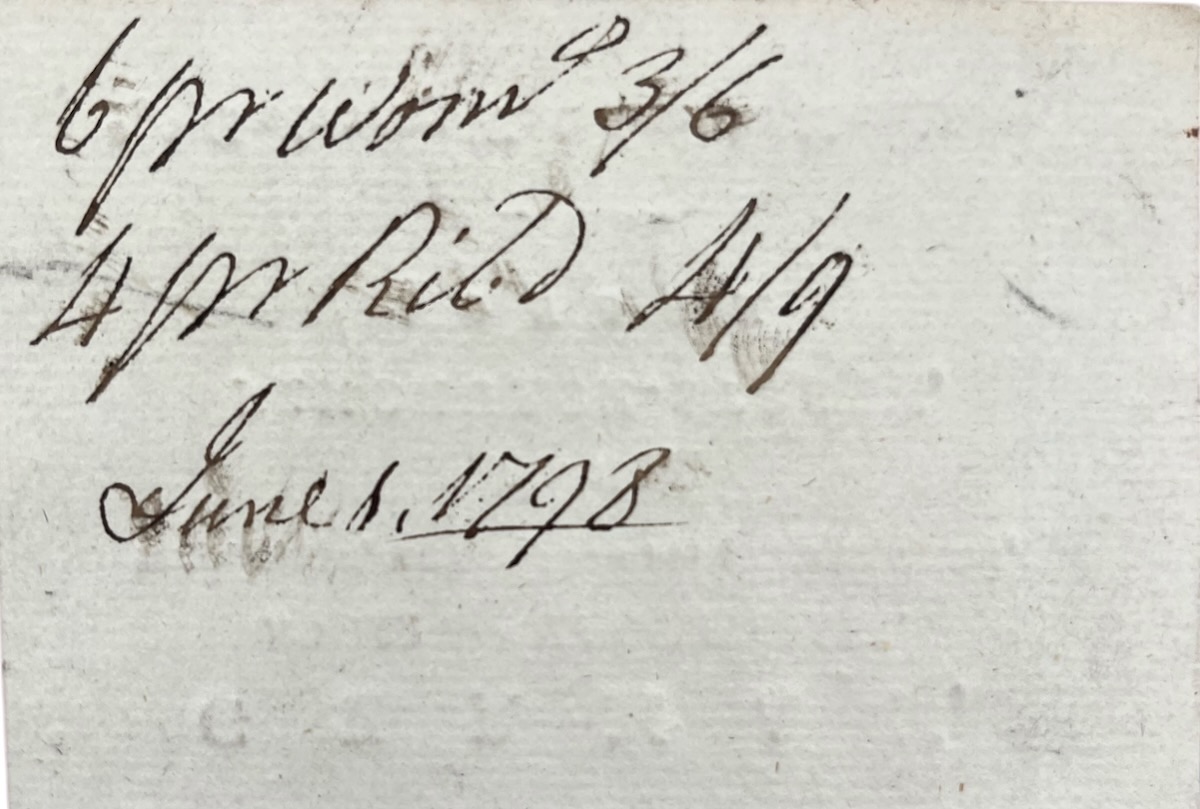 6 pr Wom^s 3/6
4 pr Rib'd 4/9
June 1. 1798